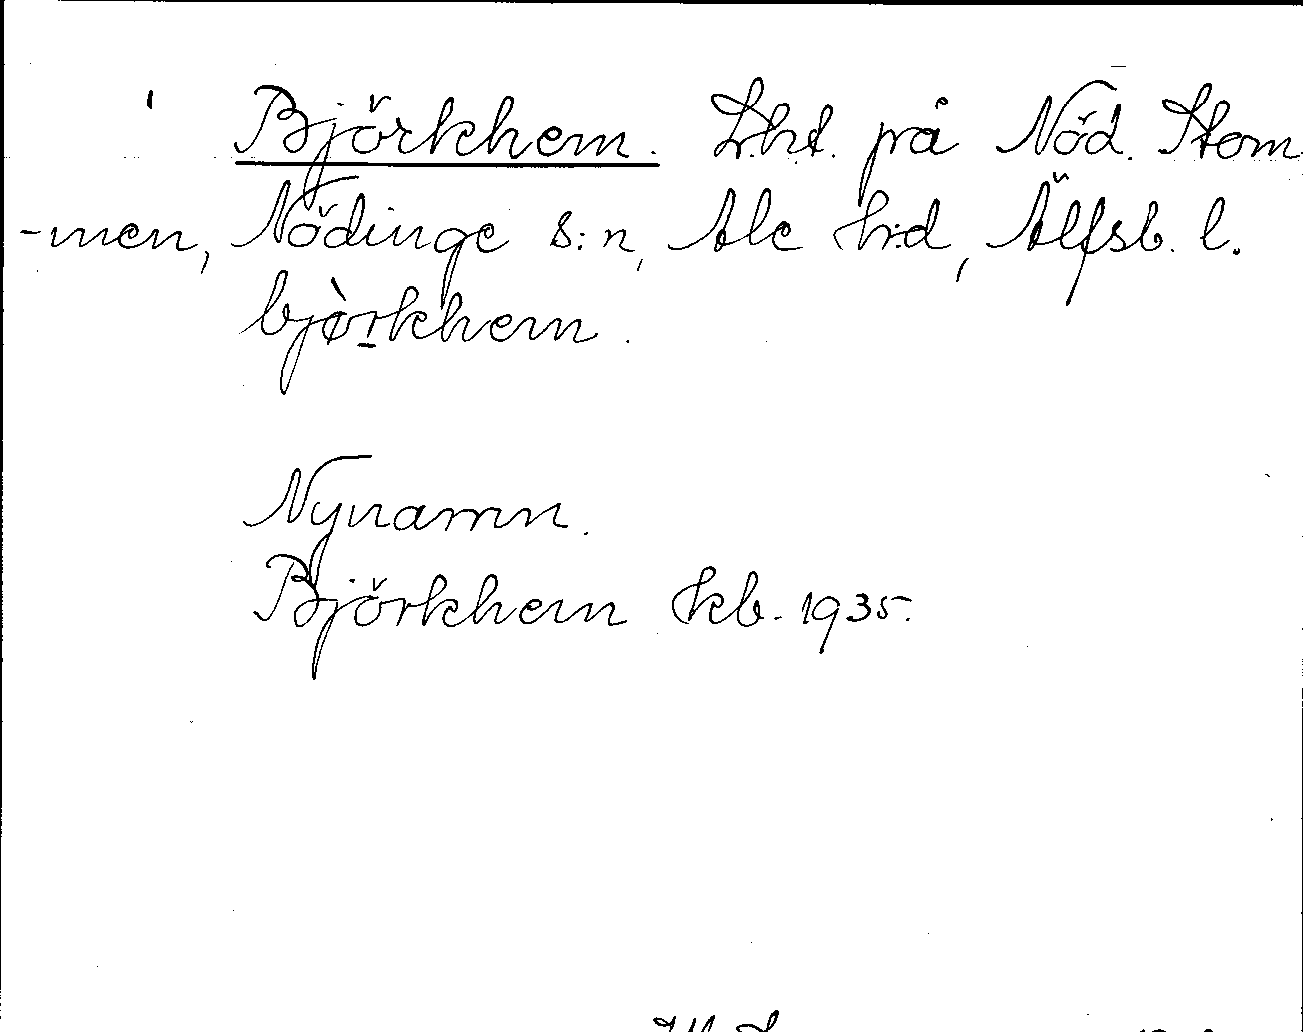 Björkhem. Lht. på Nöd. Stom
-men, Nödinge s:n, Ale h:d, Älfsb. l.
bjòrkhem.
Nynamn.
Björkhem kb. 1935.